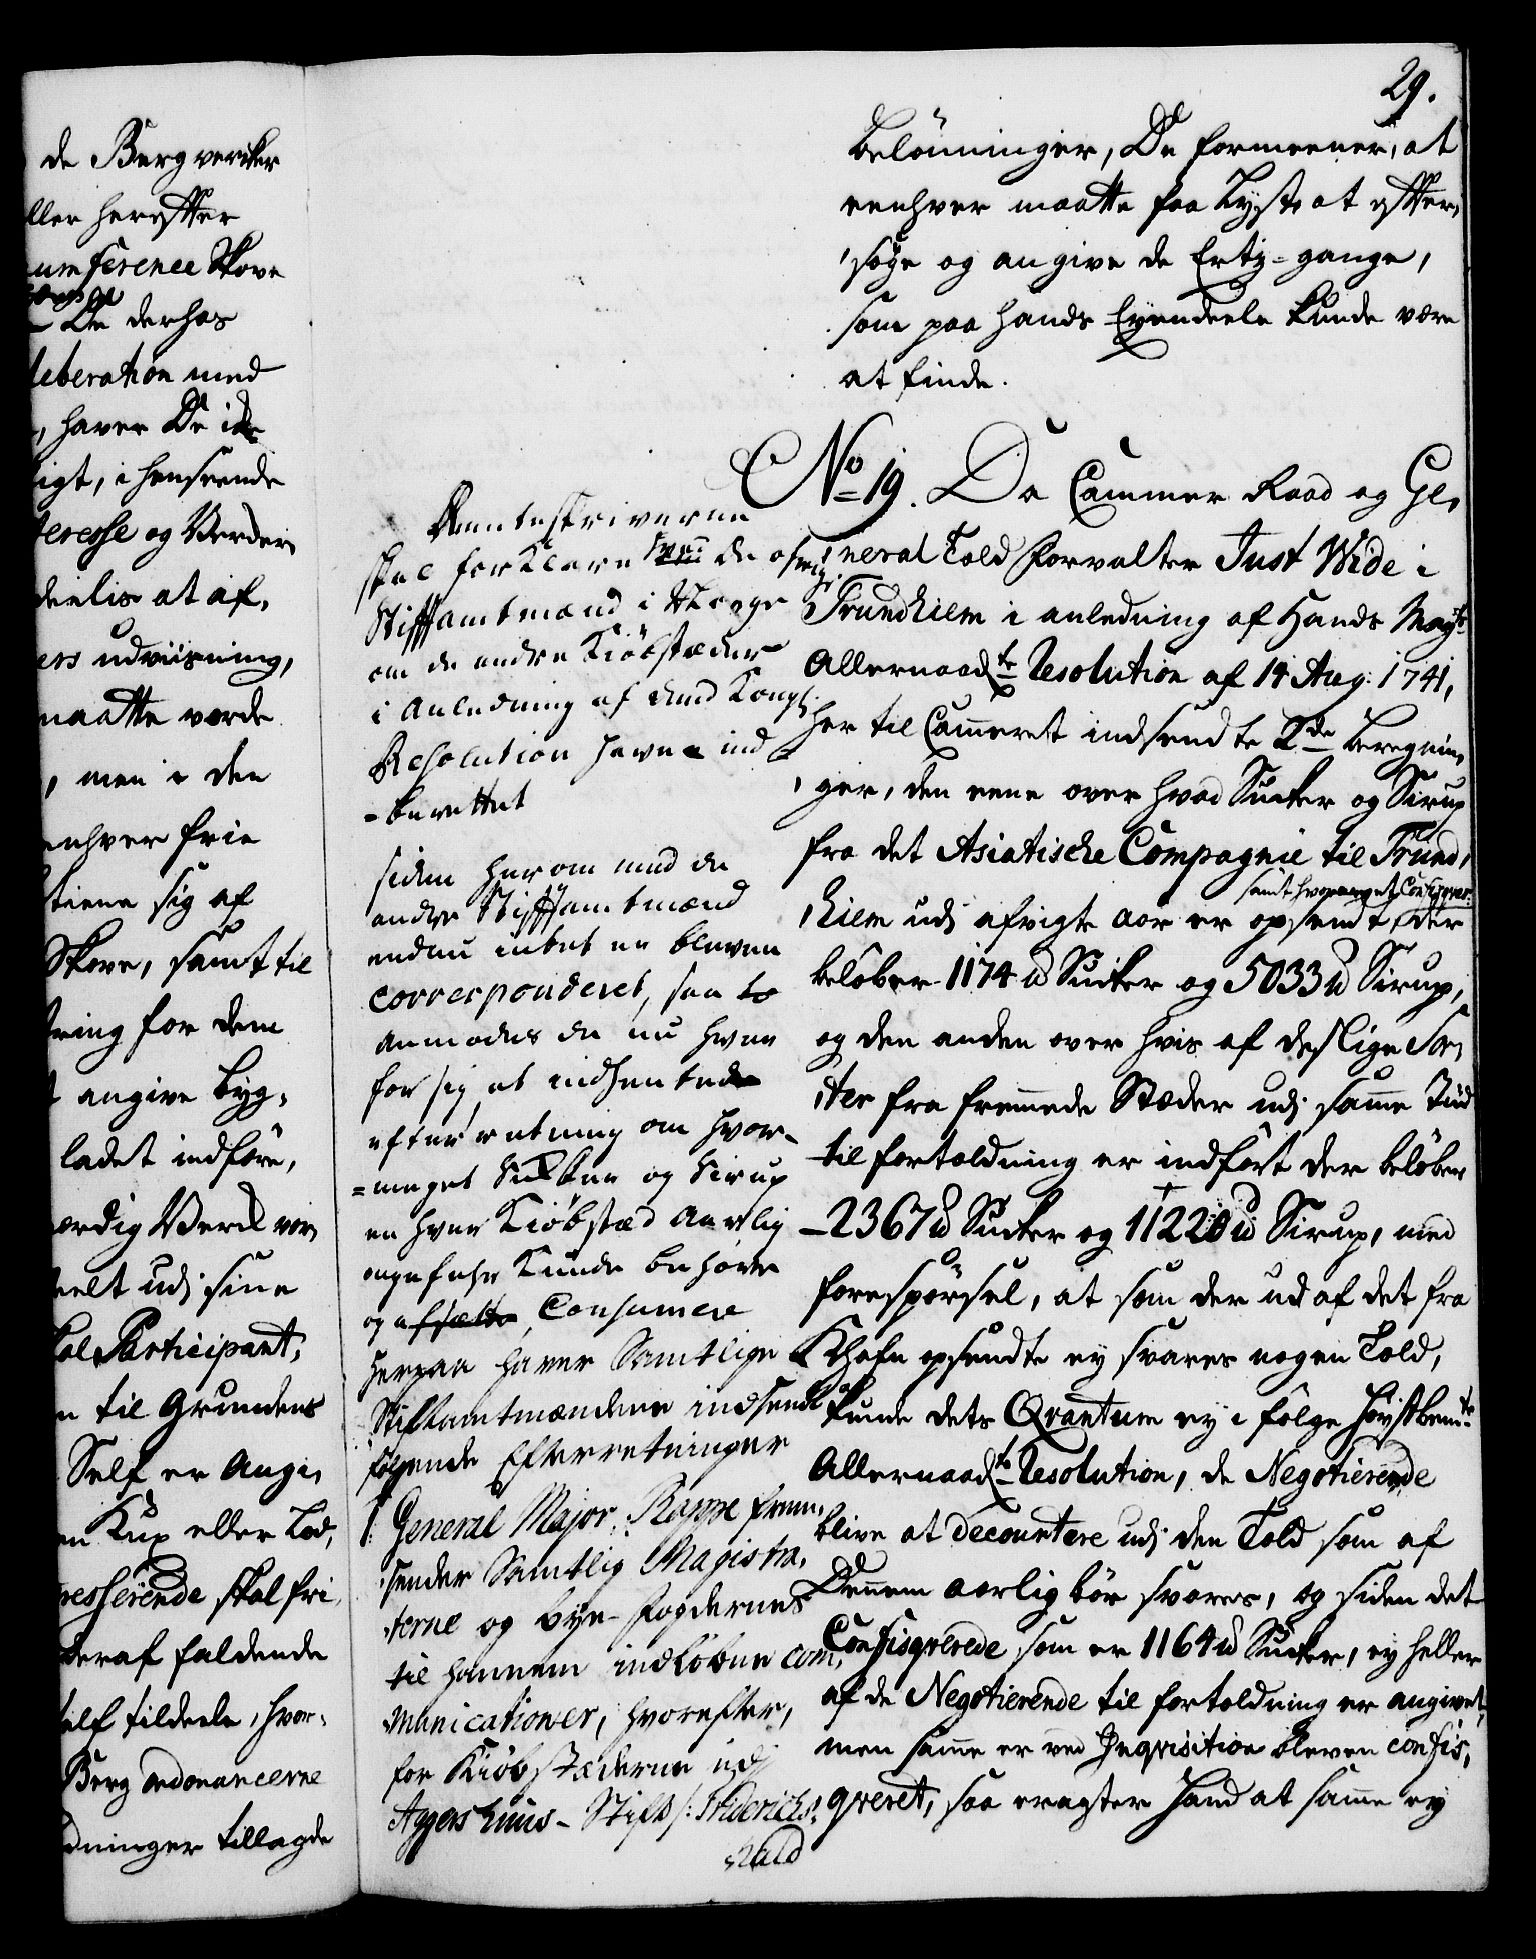 29.
de Bergvercker
ller herefter
umference Skove
De derhos
liberation med
, haver De icke
igt, i henseende
teresse og Verdien
deelis at af,
ers udviisning,
maatte vorde
, men i den
enhver frie
tiene sig af
Skove, samt til
tring for dem
t angive Byg,
ladet indföre,
ærdig Verck vor,
eelt udj sine
Participant,
n til Grundens
Self er Angi,
en Kux eller Lod,
resserende skal fri
deraf faldende
self tildeele, hvor,
Berg Ordonancerne
dninger tillagde
belönninger, De formeener, at
eenhver maatte faa Lyst, at efter,
söge og angive de Ertz-gange,
som paa hands Eyendeele kunde være
at finde.
No 19. Da Cammer Raad og Ge,
neral Told Forvalter Just Wide i
Trundhiem i anledning af Hands Mayts
Allernaadste Resolution af 14 Aug: 1741,
her til Cammeret indsendte 2de Beregnin,
ger, den eene over hvad Sucker og Sirup
fra det Asiatische Compagnie til Trund,
samt hvor meget Confisqveret
hiem udj afvigte aar er opsendt, der
belöber 1174 ℔ Sucker og 5033 ℔ Sirup,
og den anden over hvis af deslige Sor,
ter fra fremmede Stæder udj samme Tiid
til fortoldning er indfört der belöber
2367 ℔ Sucker og 11220 ℔ Sirup, med
forespörsel, at som der ud af det fra
Khafn opsendte ey svares nogen Told,
kunde dets Qvantum ey i fölge höystbemte
Allernaadste Resolution, de Negotierende
blive at decountere udj den Told som af
Dennem aarlig bör svares, og siden det
Confisqverede som er 1164 ℔ Sucker, ey heller
af de Negotierende til fortoldning er angivet,
men samme er ved Inqvisition bleven confis,
qveret, saa eragter Hand at samme ey
Renteskriverne
skal forklare de öfrige
Stiftamtmænd i Norge
om de andre Kiöbstæder
i Anledning af denne Kongl.
Resolution haver ind
-berettet
siden herom med de
andre Stiftamtmænd
endnu intet er bleven
corresponderet, saa
anmodes de nu hver
for sig at indhente
efterretning om hvor-
=meget Sucker og Sirup
en hver Kiöbstæd Aarlig
ongefehr kunde behöve
og afsætte, Consumere
Herpaa haver Samtlige
Stiftamtmændene indsendt
fölgende Efterretninger
1. General Major Rappe frem,
sender Samtlig Magistra,
terne og Bye-Fogdernes
til hannem indlöbne com,
municationer, hvorefter,
for Kiöbstæderne udj
Aggershuus-Stift /: Friderichs,
Hald